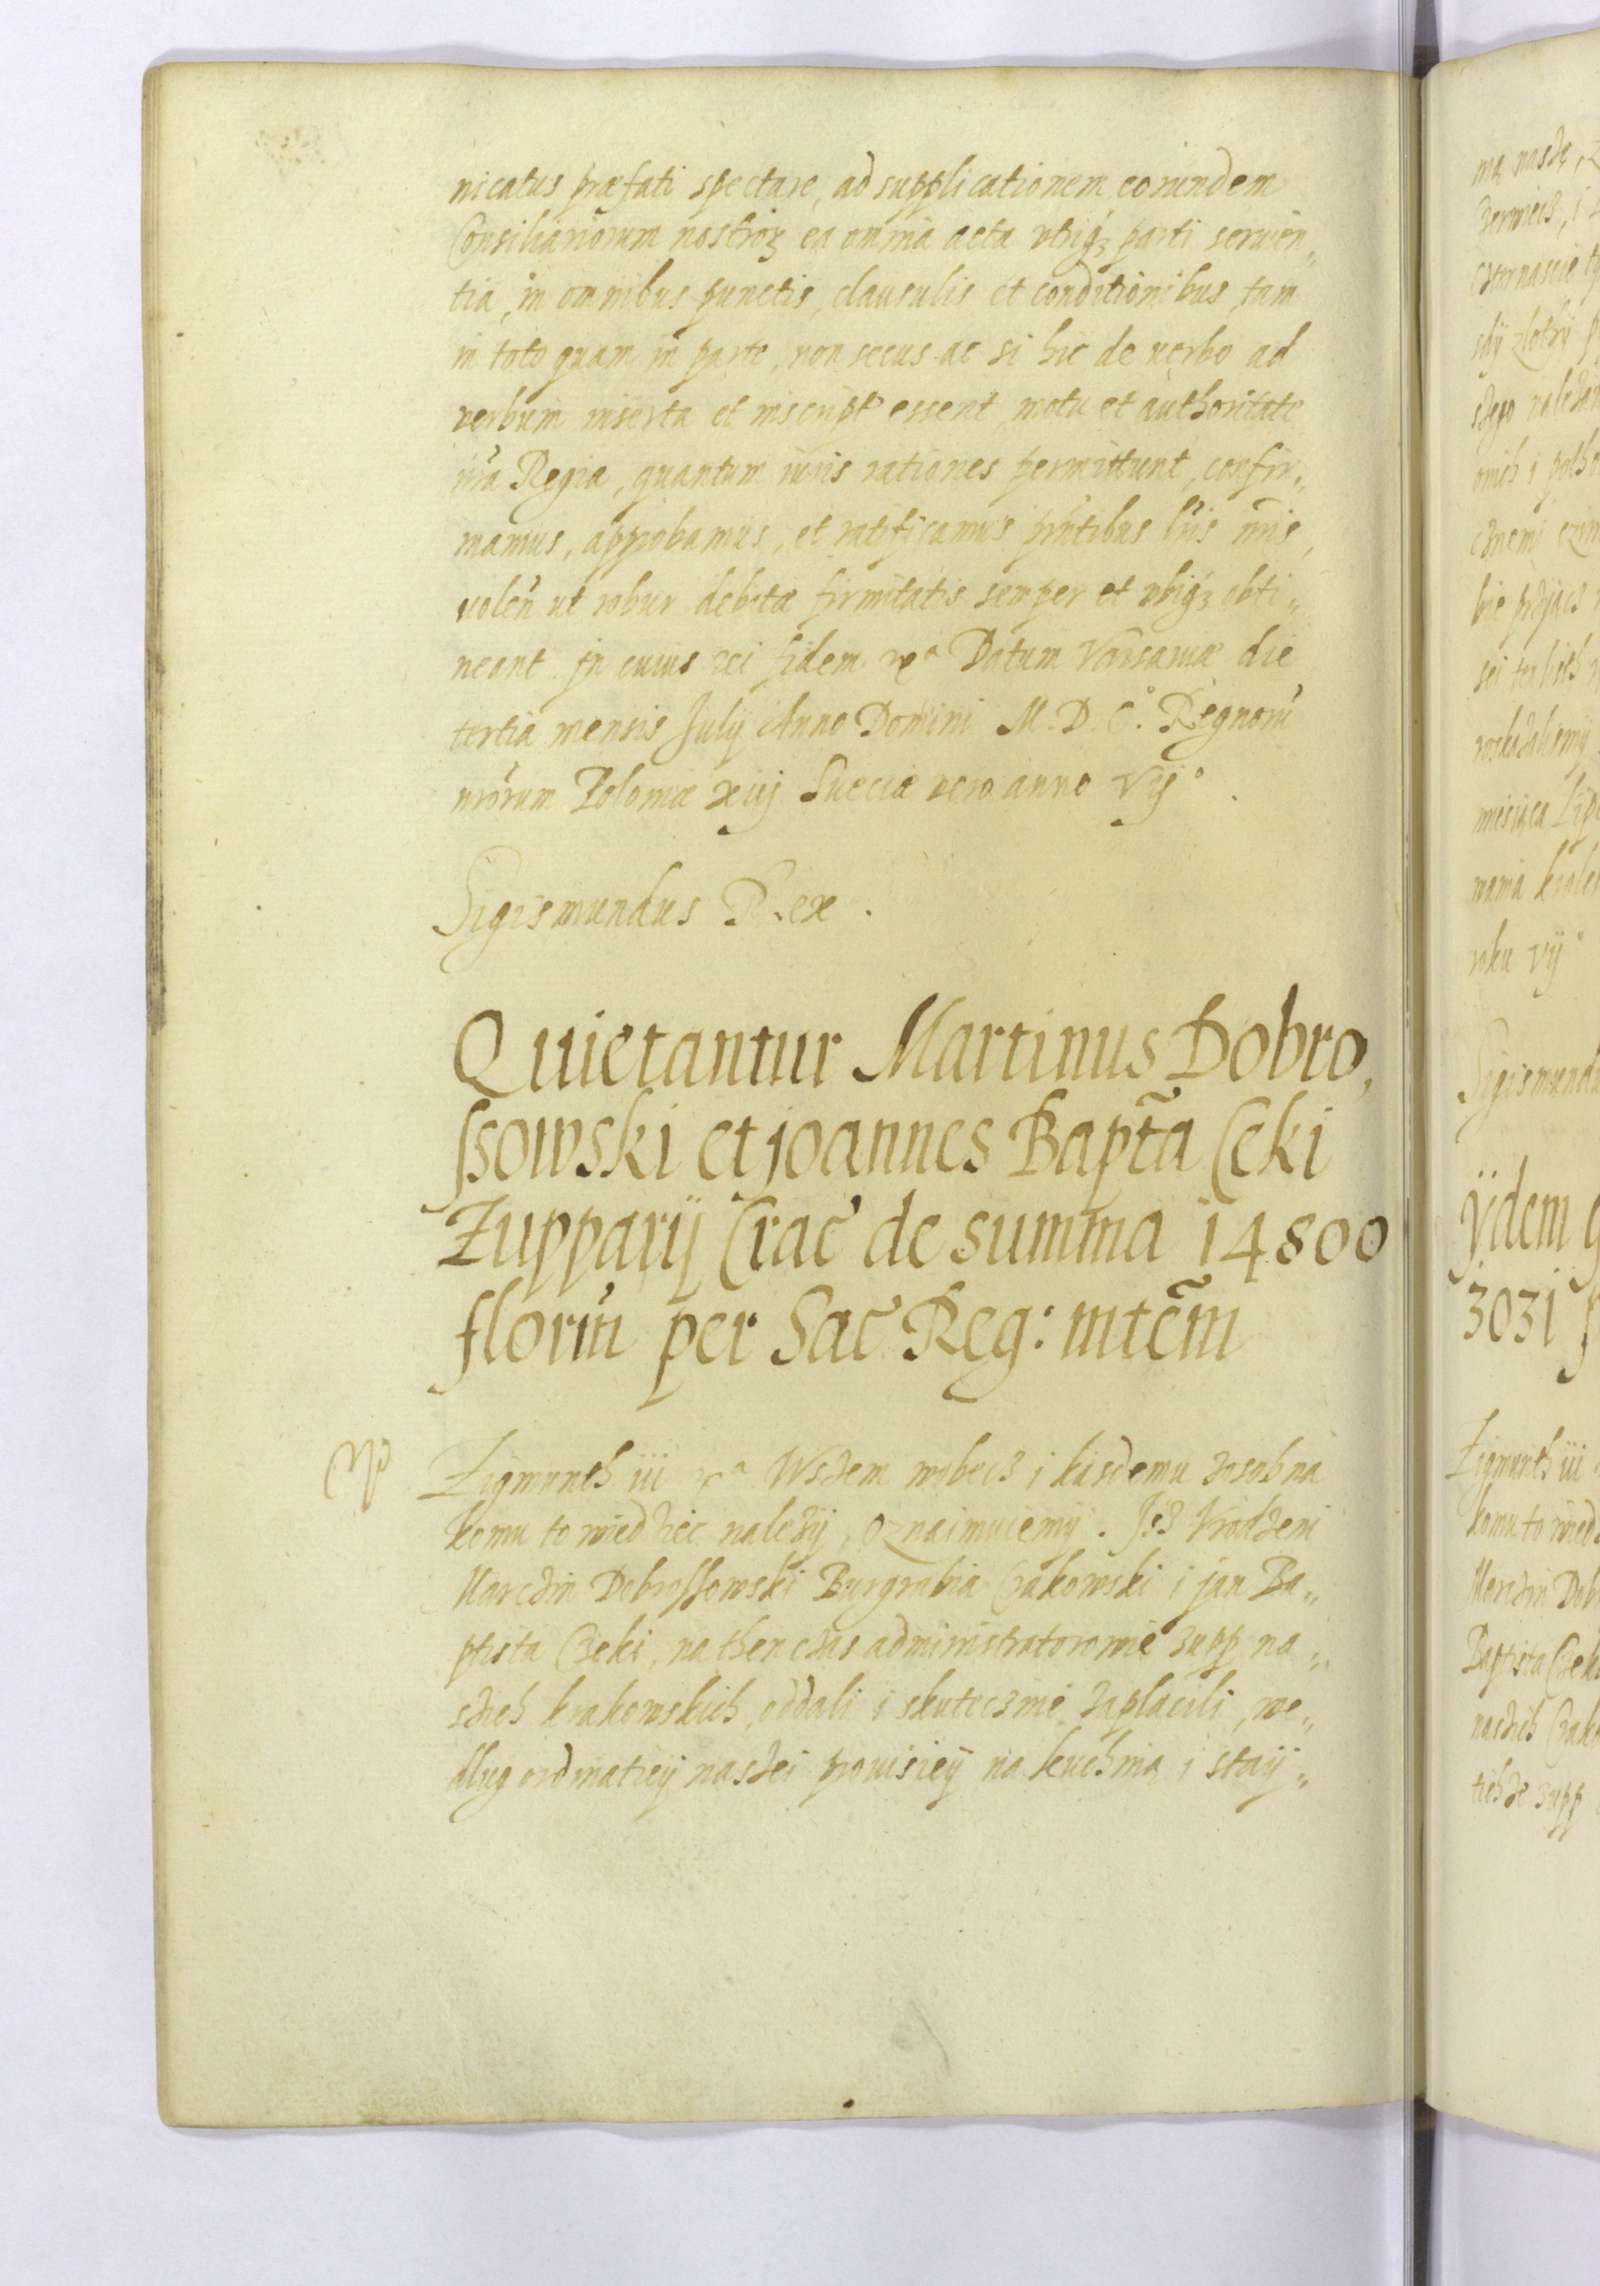 nicatus præfati spectare, ad supplicationem eorundem
Consiliariorum nostroꝝ ea omnia acta vtriqꝫ parti seruien„
tia, in omnibus punctis, clausulis et conditionibus, tam
in toto quam in parte, non secus ac si hic de verbo ad
verbum inserta et inscripta essent, motu et authoritate
nr̃a Regia, quantum iuris rationes permittunt, confir„
mamus, approbamus, et ratificamus pr̃ntibus lr̃is nr̃is,
volen̄ ut robur debitæ firmitatis semper et vbiqꝫ obti„
neant. In cuius rei fidem Datum Varsauiæ die
tertia mensis Julij Anno Domini M.D.C.° Regnorũ
nr̃orum Poloniæ xiij Sueciæ vero anno vij°.
Sigismundus Rex.
Quietantur Martinus Dobro,
ſsowski et joannes Bapt̃a Ceki
Zupparij Crac̃ de summa 14800
florin̄ per Sac̃ Reg: mtẽm
Zigmunth iii Wszem wobecz i kazdemu zosobna
komu to wiedziec nalezÿ, oznaimuiemÿ. Jez Vrodzeni
Marczin Dobroſsowski Burgrabia Crakowski i jan Ba„
ptista Czeki, na then czas administratorowie zupp na„
szich krakowskich, oddali i skutecznie zaplacili, we„
dlug ordinatieÿ naszei prouisieÿ na kuchnią i staÿ„
mą naszę,
czternascie
zlotÿ
miesiąca Lip
roku vij°
Sigismund
ÿidem
3031
Zigmunth iii
komu to wied
Marczin Dob
Baptista Czek
naszich Crako
zupp